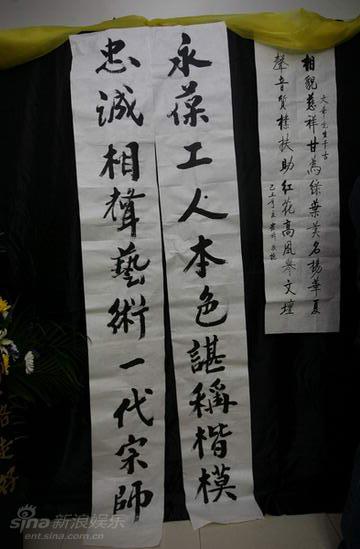 文華先生千古
相貌慈祥甘為綠葉美名揚華夏
聲音質樸扶助紅花高風舉文壇
永葆工人本色諶稱楷模
忠誠相聲藝術一代宗師
路走好
sina新浪娱乐
ent.sina.com.cn